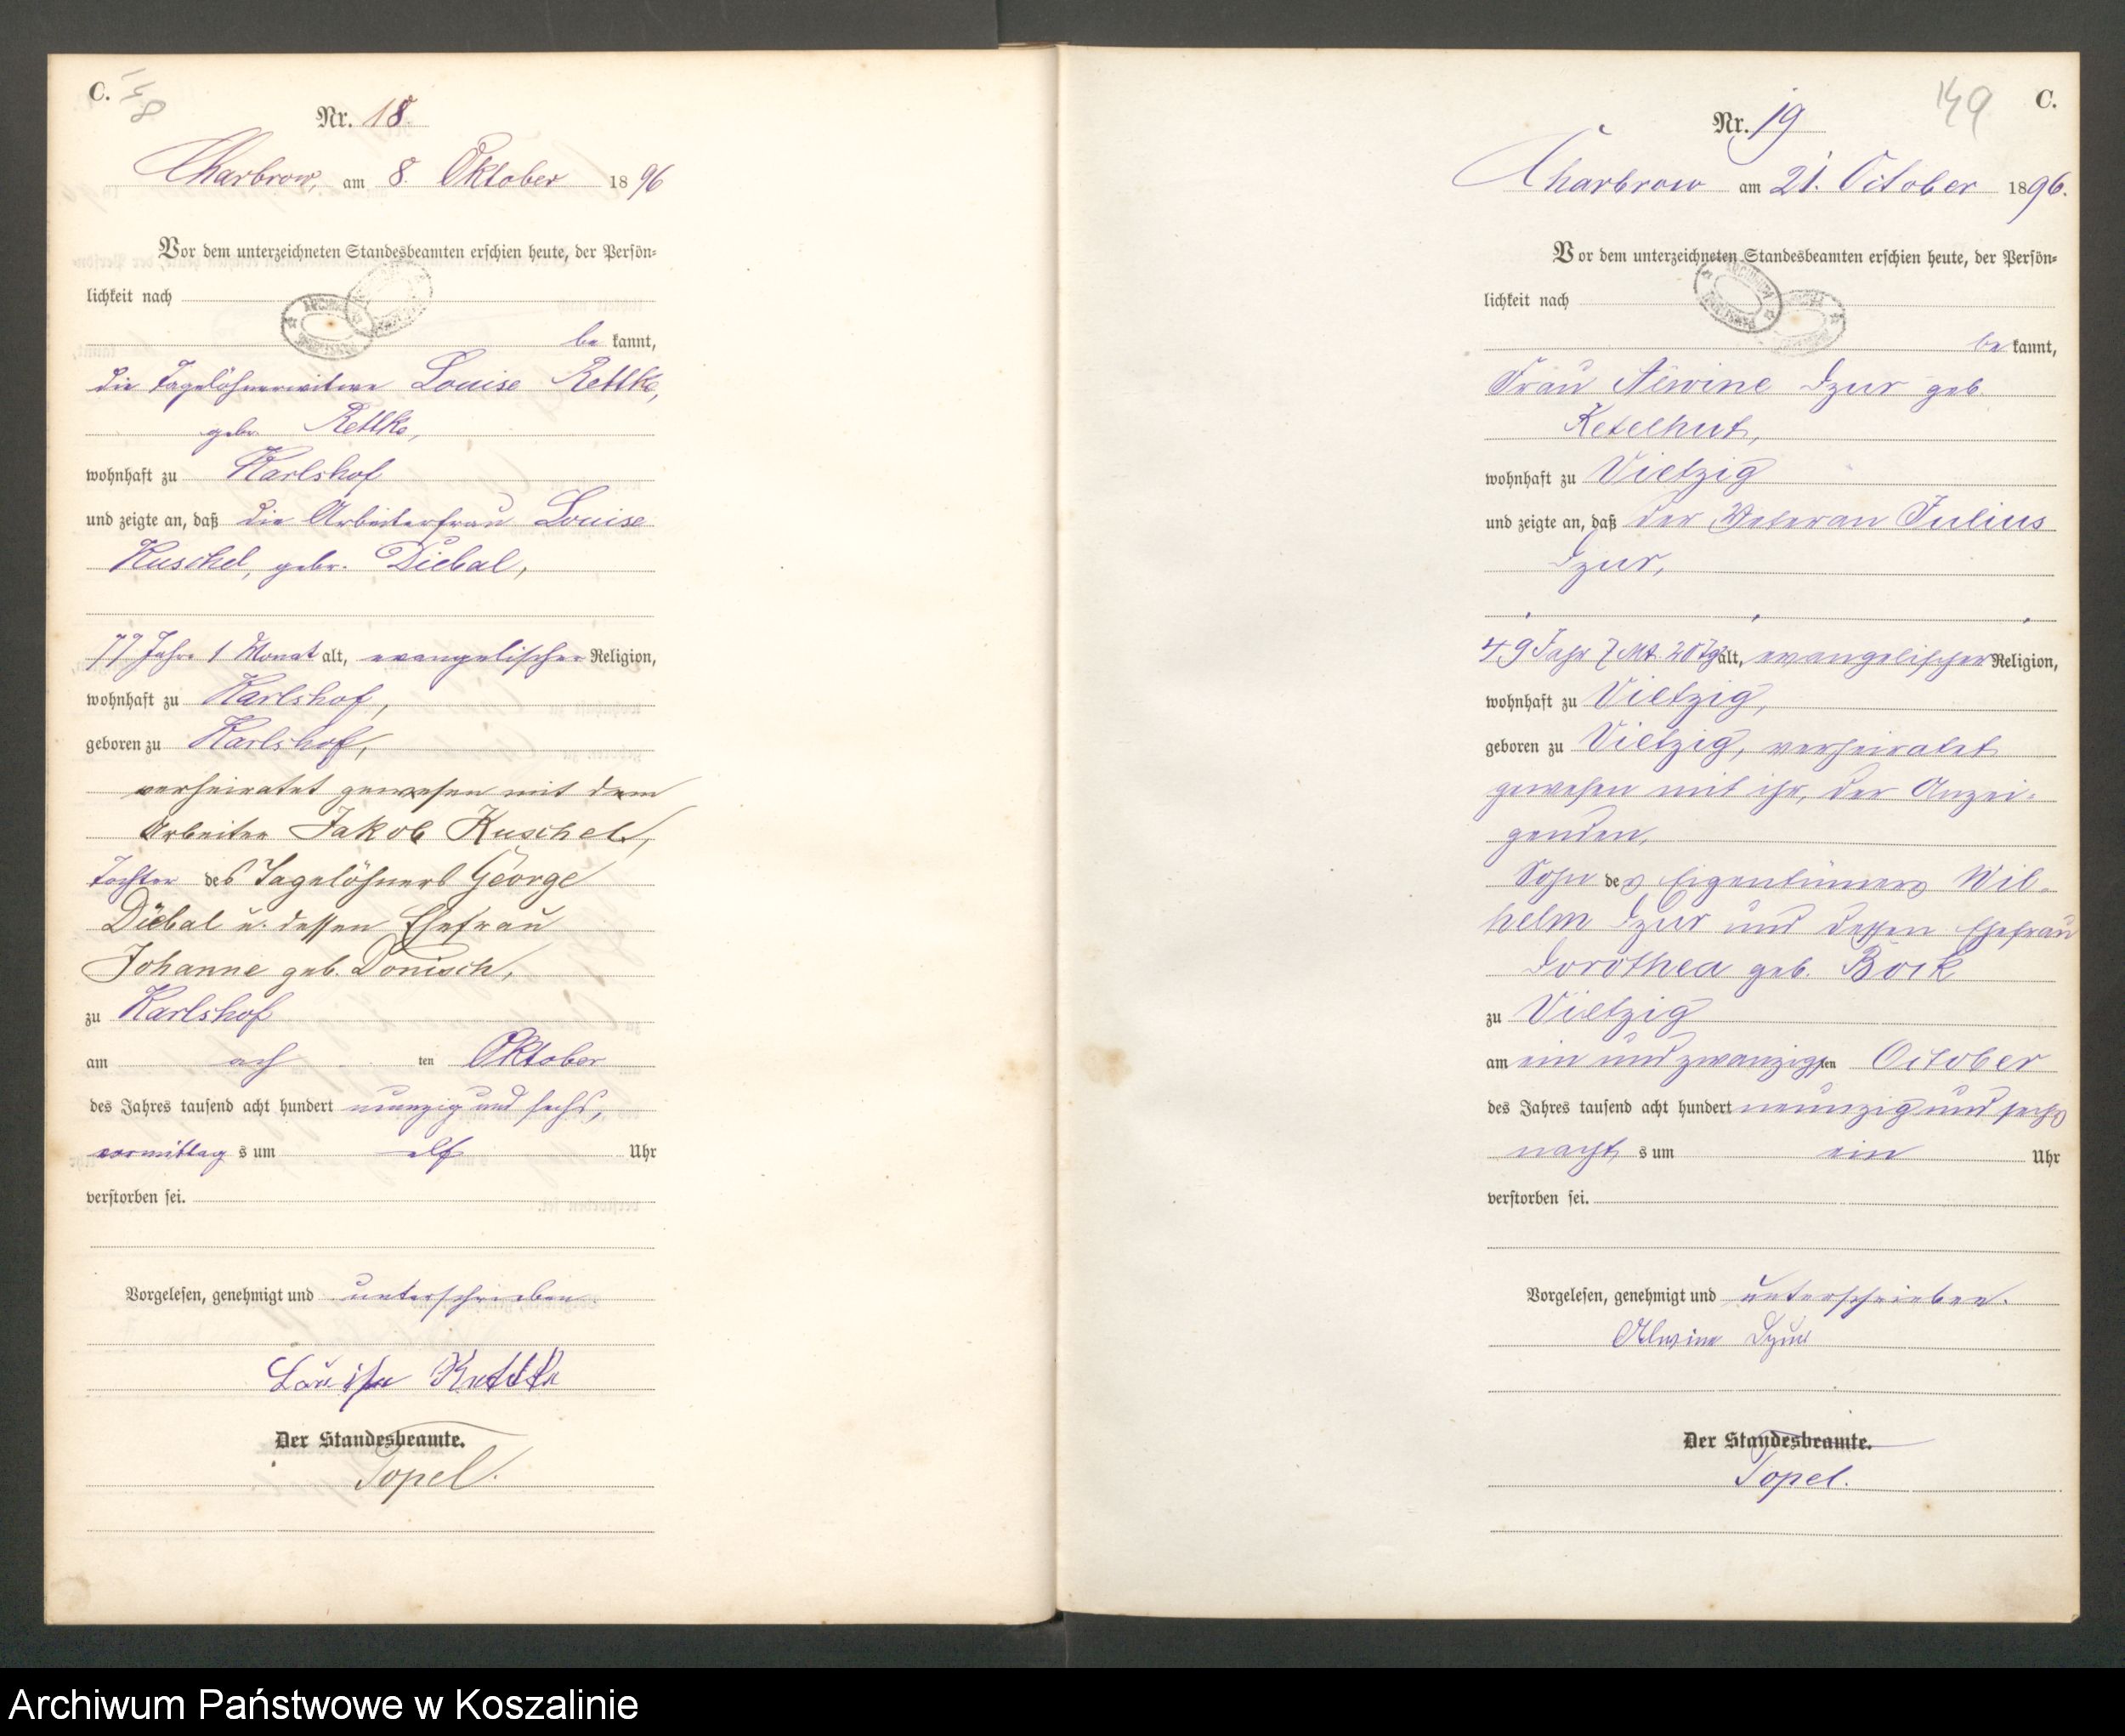 C.
Nr. 18.
Charbrow, am 8. Oktober 1896
Vor dem unterzeichneten Standesbeamten erschien heute, der Persön-
lichkeit nach
be kannt,
die Tagelöhnerwitwe Louise Rettke,
gebr. Rettke,
wohnhaft zu Karlshof
und zeigte an, daß die Arbeiterfrau Louise
Kuschel, gebr. Diebal,
77 Jahre 1 Monat alt, evangelischer Religion,
wohnhaft zu Karlshof,
geboren zu Karlshof,
verheiratet gewesen mit dem
Arbeiter Jakob Kuschel,
Tochter des Tagelöhners George
Diebal u. dessen Ehefrau
Johanne geb. Donisch,
zu Karlshof
am ach ten Oktober
des Jahres tausend acht hundert neunzig und sechs,
vormittag s um elf Uhr
verstorben sei.
Vorgelesen, genehmigt und unterschrieben.
Louise Rettke
Der Standesbeamte.
Topel.
149 C.
Nr. 19
Charbrow am 21. October 1896.
Vor dem unterzeichneten Standesbeamten erschien heute, der Persön-
lichkeit nach
be kannt,
Frau Alwine Dzur geb.
Ketelhut,
wohnhaft zu Vietzig
und zeigte an, daß der Veteran Julius
Dzur,
49 Jahr 7 Mt 20 Tg alt, evangelischer Religion,
wohnhaft zu Vietzig,
geboren zu Vietzig, verheiratet
gewesen mit ihr, der Anzei-
genden,
Sohn des Eigentümers Wil-
helm Dzur und dessen Ehefrau
Dorothea geb. Bock
zu Vietzig
am ein und zwanzigsten October
des Jahres tausend acht hundert neunzig und sechs
nacht s um ein Uhr
verstorben sei.
Vorgelesen, genehmigt und unterschrieben.
Alwine Dzur
Der Standesbeamte.
Topel.
Archiwum Państwowe w Koszalinie